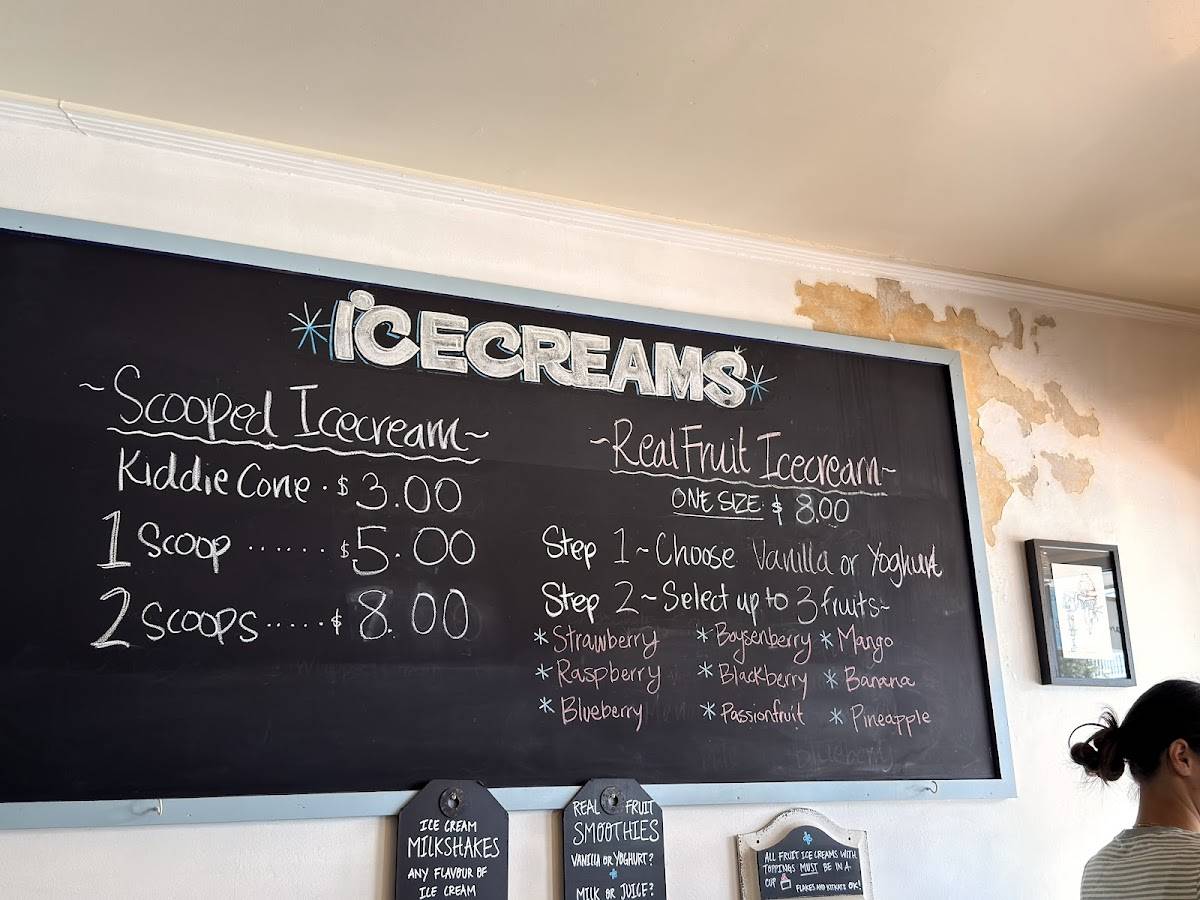 ICECREAMS
~Scooped Icecream~
Kiddie Cone · $3.00
1 Scoop ...... $5.00
2 Scoops ..... $8.00
~Real Fruit Icecream~
ONE SIZE $8.00
Step 1~Choose Vanilla or Yoghurt
Step 2~Select up to 3 fruits~
*Strawberry *Boysenberry *Mango
*Raspberry *Blackberry *Banana
*Blueberry *Passionfruit *Pineapple
ICE CREAM
MILKSHAKES
ANY FLAVOUR OF
ICE CREAM
REAL FRUIT
SMOOTHIES
VANILLA OR YOGHURT?
+
MILK OR JUICE?
ALL FRUIT ICE CREAMS WITH
TOPPINGS MUST BE IN A
CUP FLAKES AND KITKATS OK!